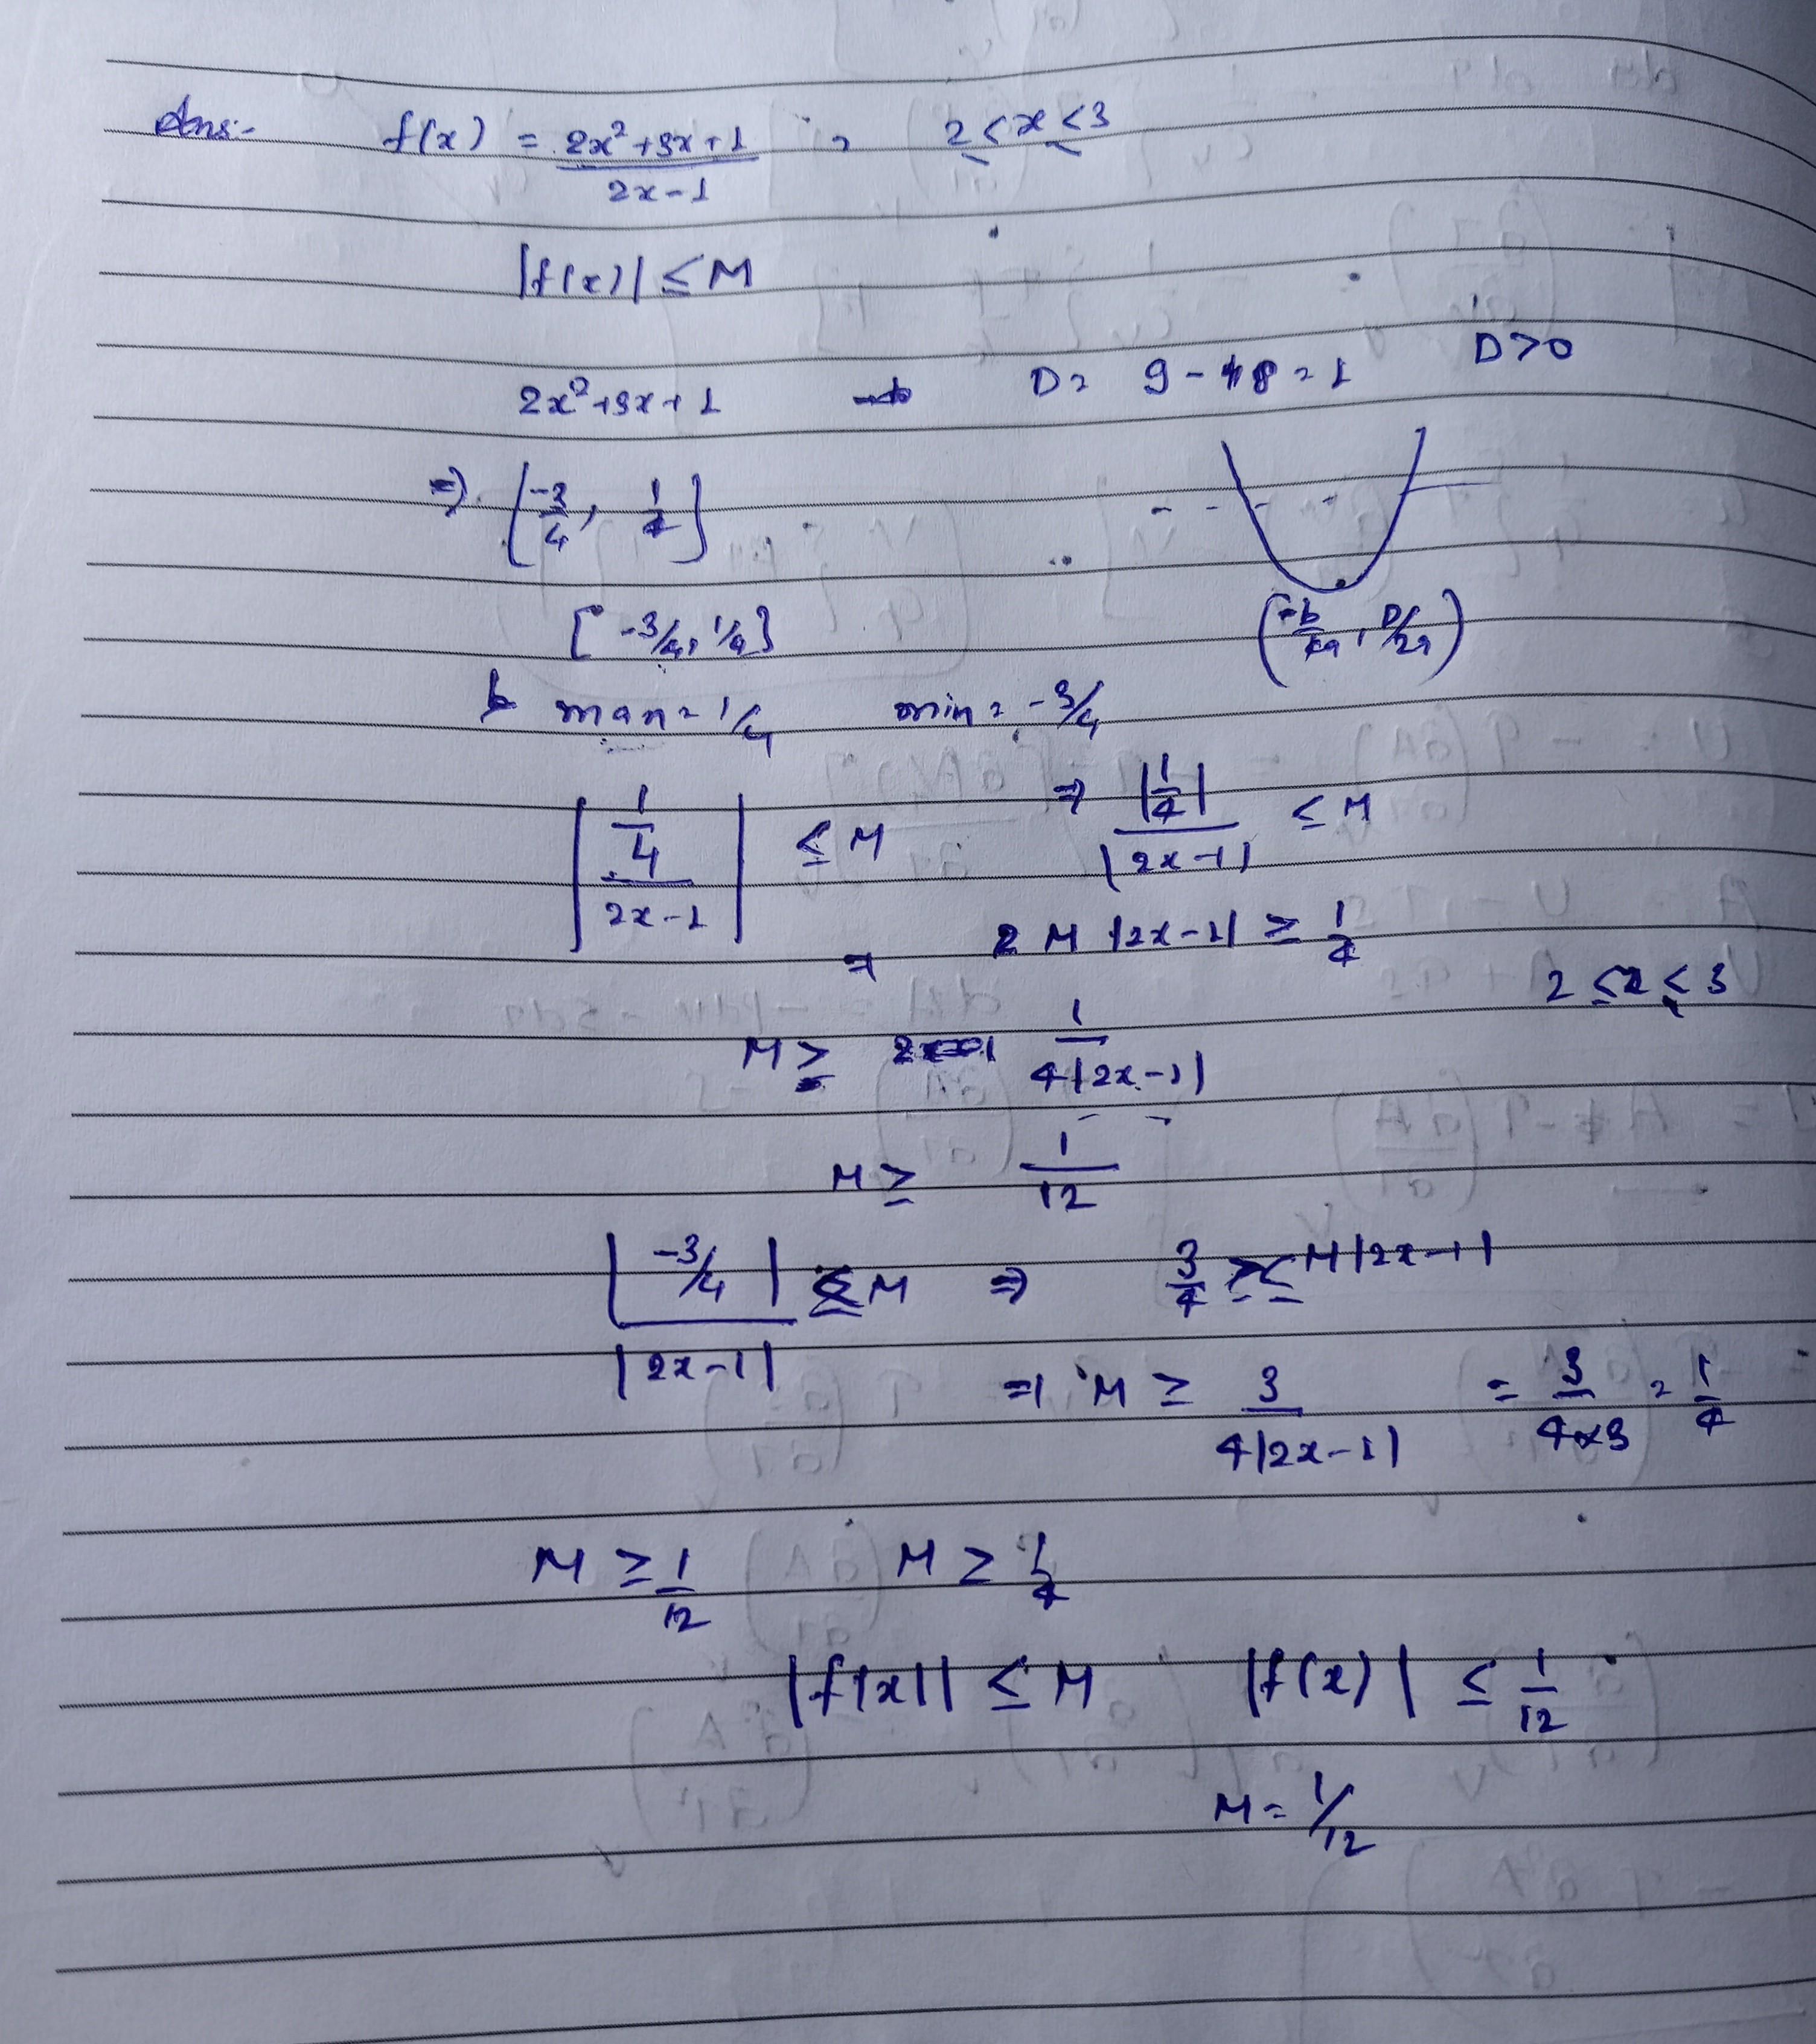 Ans:- f(x) = (2x²+3x+1)/(2x-1) , 2 ≤ x ≤ 3
|f(x)| ≤ M
2x²+3x+1 → D = 9-8 = 1 D>0
⇒ [-3/4, 1/4]
[-3/4, 1/4] (-b/4a, D/2a)
max = 1/4 min = -3/4
|(1/4)/(2x-1)| ≤ M ⇒ |1/4|/|2x-1| ≤ M
⇒ 2 M |2x-1| ≥ 1/4
2 ≤ x ≤ 3
M ≥ 1/(4|2x-1|)
M ≥ 1/12
|-3/4|/|2x-1| ≤ M ⇒ 3/4 ≤ M|2x-1|
⇒ M ≥ 3/(4|2x-1|) = 3/(4×3) = 1/4
M ≥ 1/12 M ≥ 1/4
|f(x)| ≤ M |f(x)| ≤ 1/12
M = 1/12